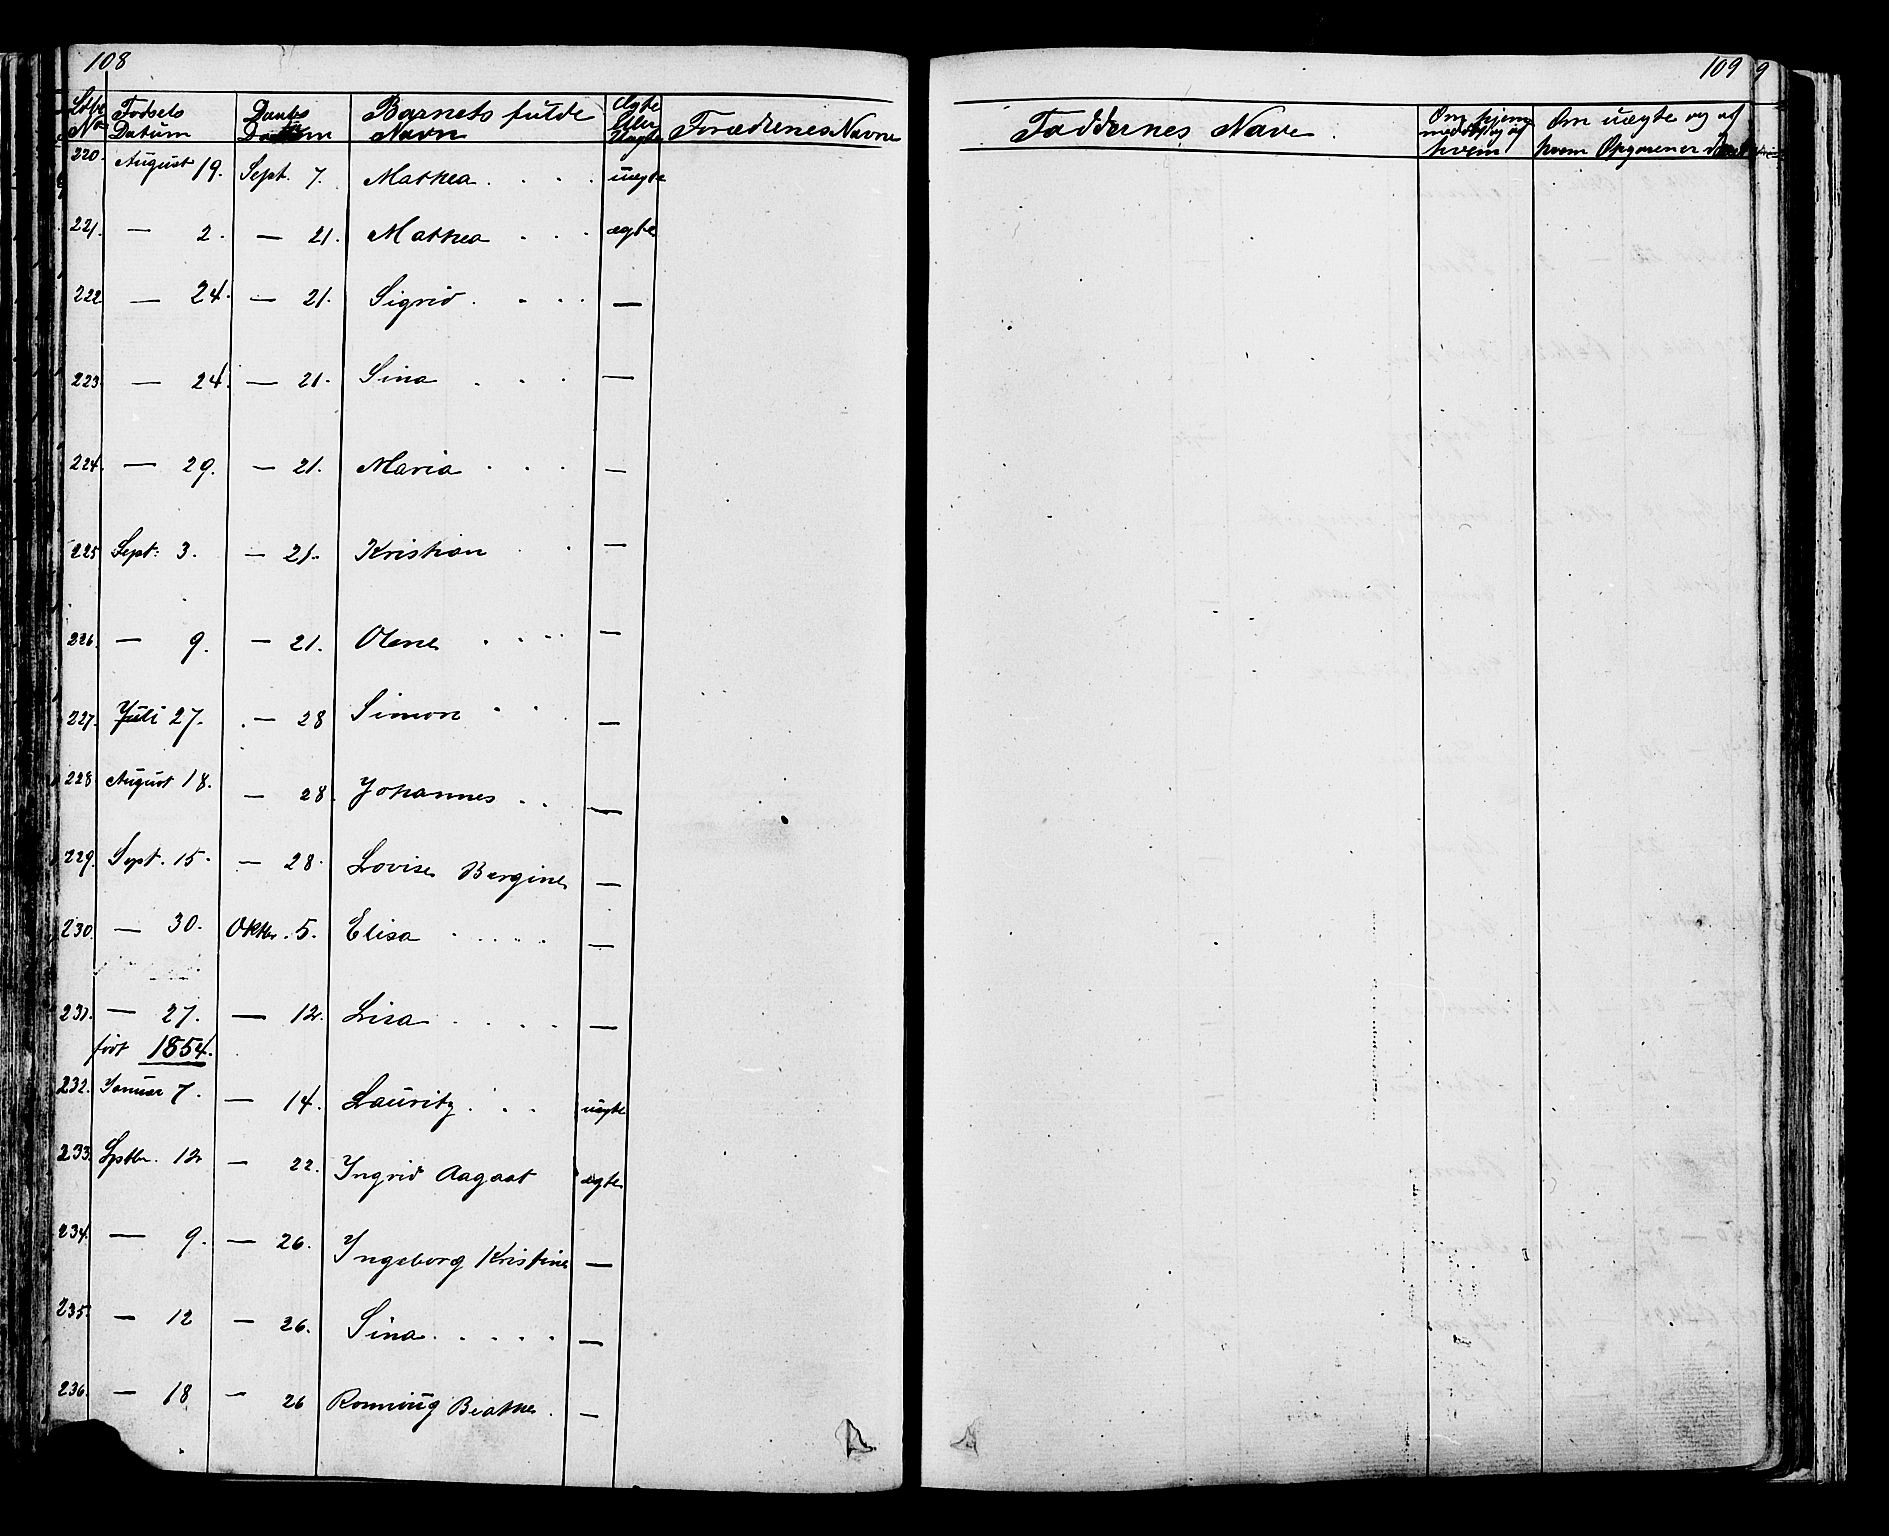 108
Løbe No Fødsels Datum Daabs Datum Barnets fulde Navn Ægte Eller Uægte Forældrenes Navne
220. August 19. Sept. 7. Mathea uægte
221. — 2. — 21. Mathea ægte
222 — 24. — 21. Sigrid —
223 — 24. — 21. Sina —
224. — 29. — 21. Maria —
225 Sept. 3. — 21. Kristian —
226. — 9. — 21. Olene —
227. Juli 27. — 28 Simon —
228 August 18. — 28. Johannes —
229. Sept. 15. — 28. Lovise Bergine —
230. — 30. Oktbr. 5. Elisa —
231. — 27. — 12. Lisa —
født 1854.
232. Januar 7. — 14. Lauritz uægte
233. Sptbr. 12 — 22. Ingrid Aagaat ægte
234. — 9. — 26. Ingeborg Kristine —
235. — 12 — 26. Sina —
236. — 18 — 26 Ronnoug Beathe —
109
9
Faddernes Navne Om hjemmedøbt og af hvem Om uægte og af hvem Opgaven er